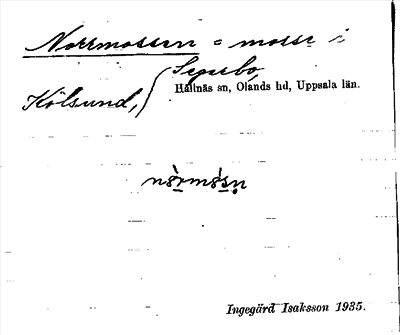 Norrmossen = mosse i
Kölsund,
Hållnäs sn, Olands hd, Uppsala län.
Ingegärd Isaksson 1935.